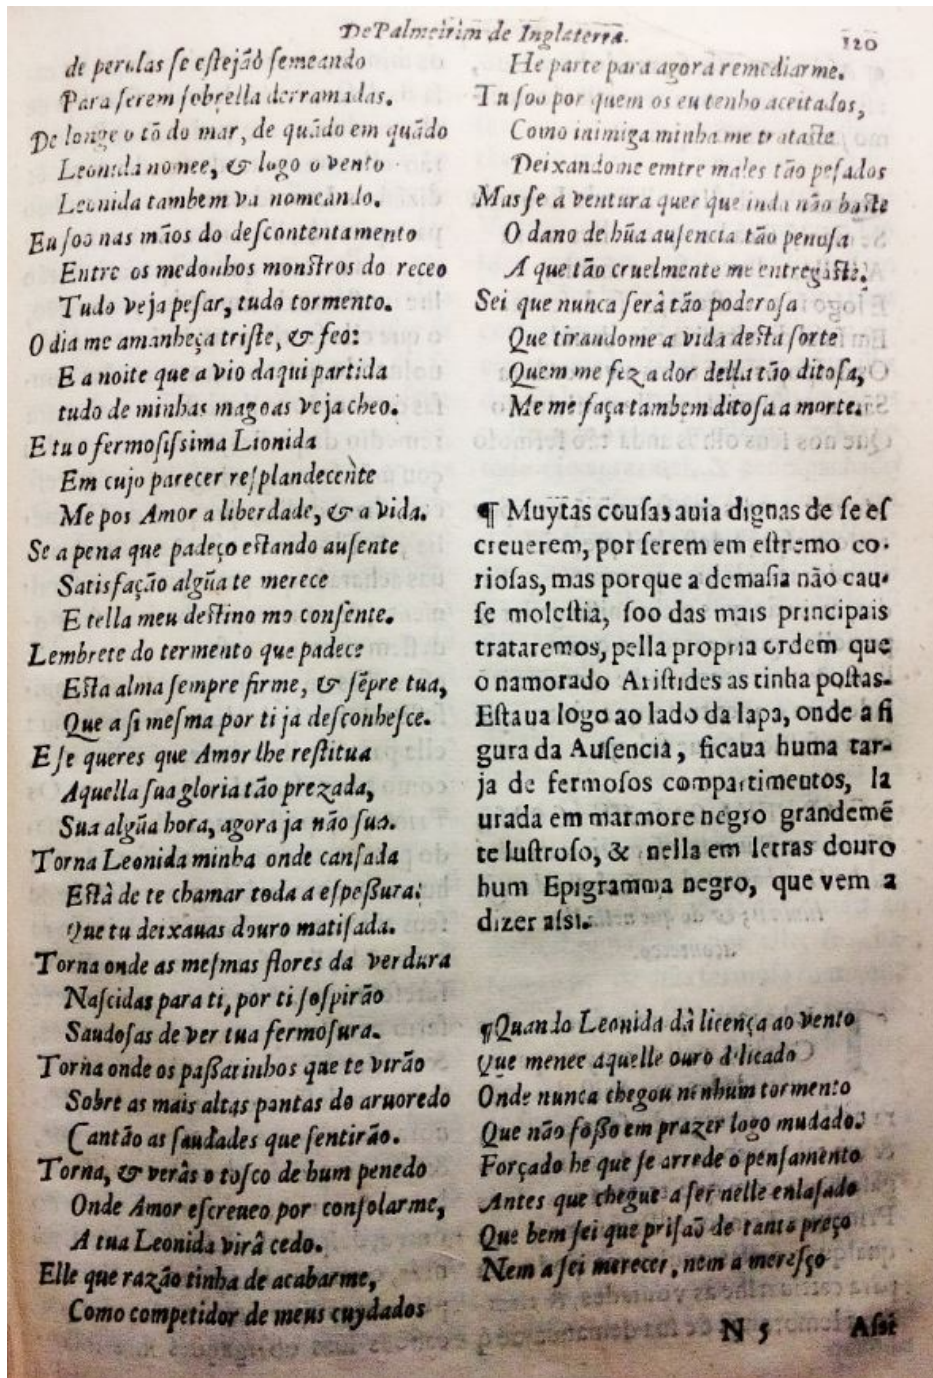 De Palmeirim de Inglaterra.
120
de perolas se estejão semeando
Para serem sobrella derramadas.
De longe o tõ do mar, de quãdo em quãdo
Leonida nomee, & logo o vento
Leonida tambem va nomeando.
Eu soo nas mãos do descontentamento
Entre os medonhos monstros do receo
Tudo veja pesar, tudo tormento.
O dia me amanheça triste, & feo:
E a noite que a vio daqui partida
tudo de minhas magoas veja cheo.
E tu o fermosissima Lionida
Em cujo parecer resplandecente
Me pos Amor a liberdade, & a vida.
Se a pena que padeço estando ausente
Satisfação algũa te merece
E tella meu destino mo consente.
Lembrete do termento que padece
Esta alma sempre firme, & sẽpre tua,
Que a si mesma por ti ja desconhesce.
E se queres que Amor lhe restitua
Aquella sua gloria tão prezada,
Sua algũa hora, agora ja não sua.
Torna Leonida minha onde cansada
Està de te chamar toda a espessura:
Que tu deixauas douro matisada.
Torna onde as mesmas flores da verdura
Nascidas para ti, por ti sospirão
Saudosas de ver tua fermosura.
Torna onde os passarinhos que te virão
Sobre as mais altas pontas do aruoredo
Cantão as saudades que sentirão.
Torna, & verâs o tosco de hum penedo
Onde Amor escreueo por consolarme,
A tua Leonida virâ cedo.
Elle que razão tinha de acabarme,
Como competidor de meus cuydados
He parte para agora remediarme.
Tu soo por quem os eu tenho aceitados,
Como inimiga minha me trataste
Deixandome emtre males tão pesados
Mas se a ventura quer que inda não baste
O dano de hũa ausencia tão penosa
A que tão cruelmente me entregaste.
Sei que nunca serâ tão poderosa
Que tirandome a vida desta sorte
Quem me fez a dor della tão ditosa,
Me me faça tambem ditosa a morte.
¶ Muytas cousas auia dignas de se es
creuerem, por serem em estremo co-
riosas, mas porque a demasia não cau-
se molestia, soo das mais principais
trataremos, pella propria ordem que
o namorado Aristides as tinha postas.
Estaua logo ao lado da lapa, onde a fi
gura da Ausencia, ficaua huma tar-
ja de fermosos compartimentos, la
urada em marmore negro grandemẽ
te lustroso, & nella em letras douro
hum Epigramma negro, que vem a
dizer assi.
¶Quando Leonida dâ licença ao vento
Que menee aquelle ouro delicado
Onde nunca chegou ninhum tormento
Que não fosso em prazer logo mudado.
Forçado he que se arrede o pensamento
Antes que chegue a ser nelle enlasado
Que bem sei que prisaõ de tanto preço
Nem a sei merecer, nem a meresço
N 5
Assi